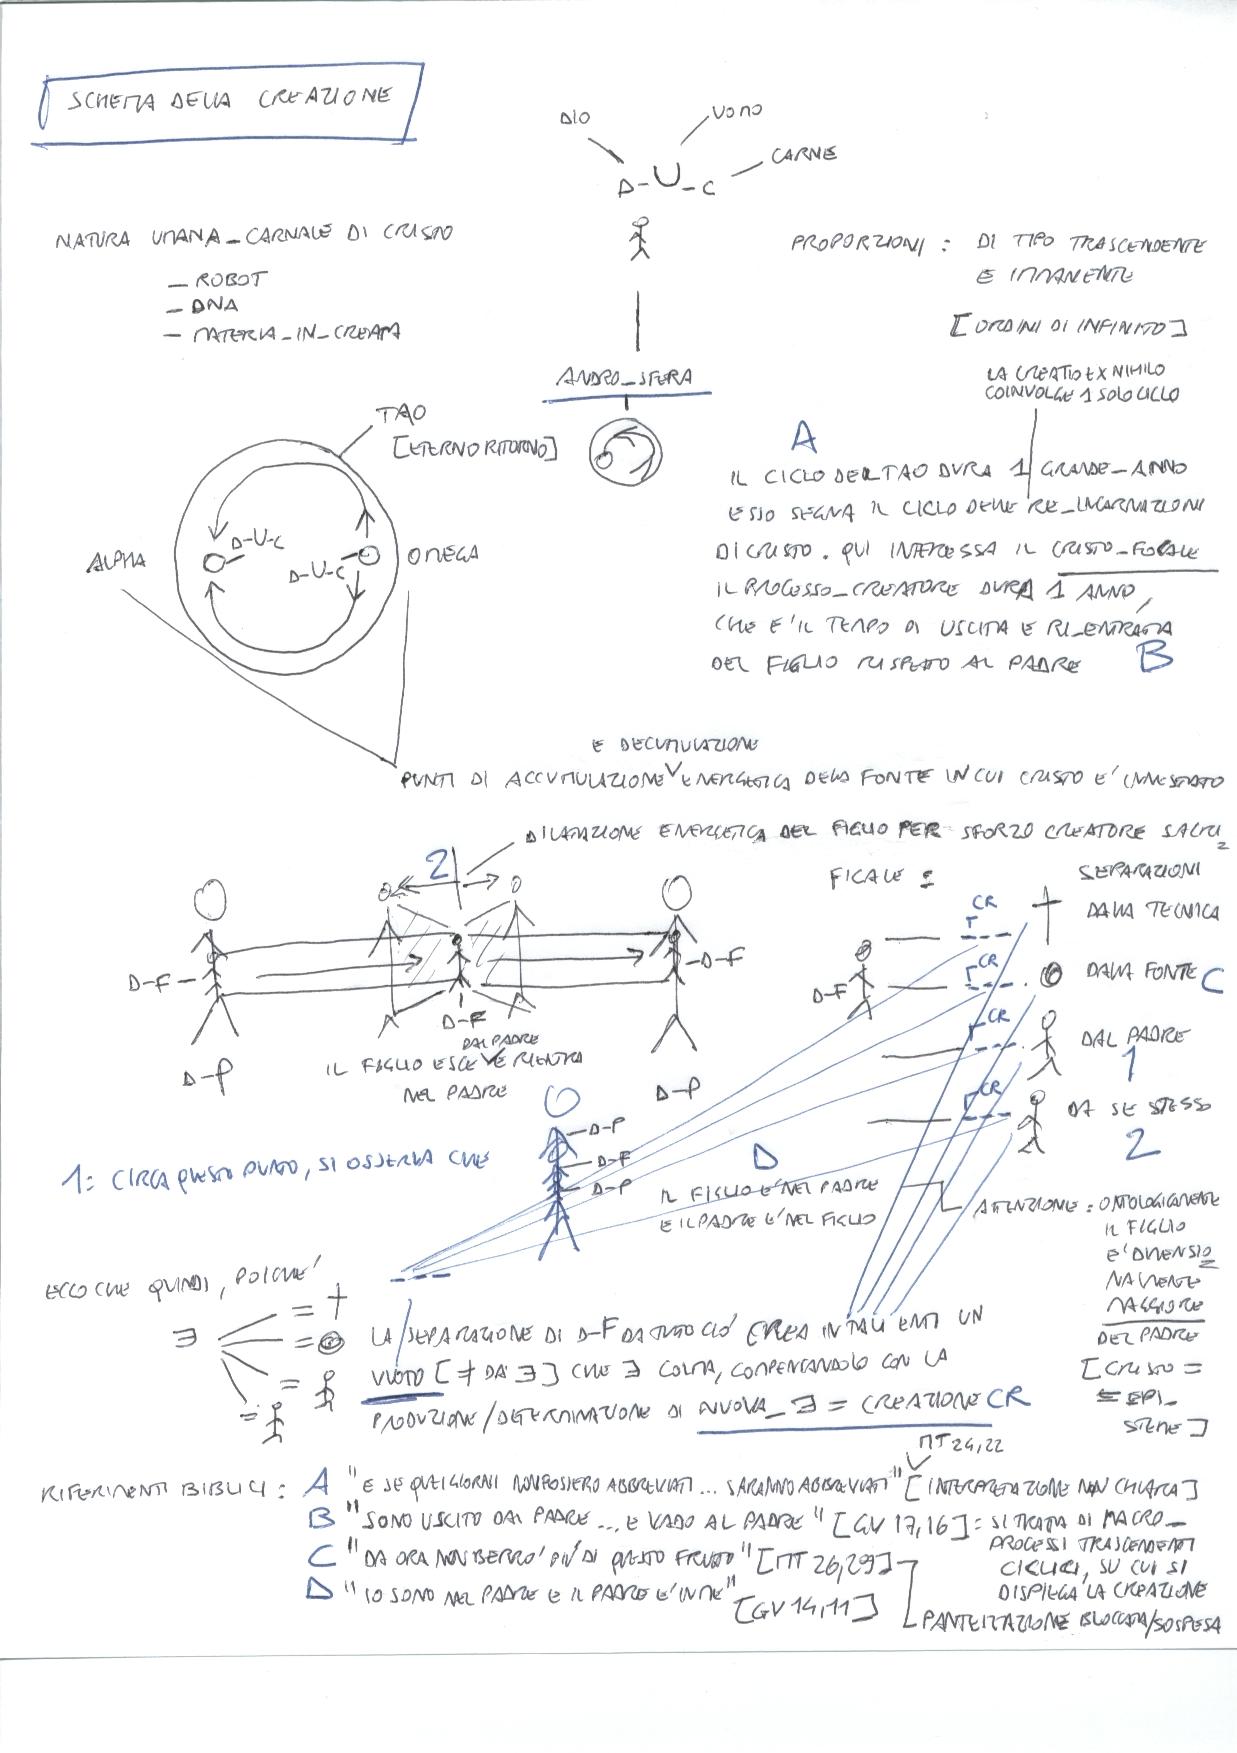 SCHEMA DELLA CREAZIONE
DIO
UOMO
CARNE
D-U-C
NATURA UMANA_CARNALE DI CRISTO
— ROBOT
— DNA
— MATERIA_IN_CREATA
PROPORZIONI : DI TIPO TRASCENDENTE
E IMMANENTE
[ORDINI DI INFINITO]
LA CREATIO EX NIHILO
COINVOLGE 1 SOLO CICLO
ANDRO_SFERA
TAO
[ETERNO RITORNO]
ALPHA
D-U-C
D-U-C
OMEGA
A
IL CICLO DEL TAO DURA 1 GRANDE_ANNO
ESSO SEGNA IL CICLO DELLE RE_INCARNAZIONI
DI CRISTO. QUI INTERESSA IL CRISTO_FOCALE
IL PROCESSO_CREATORE DURA 1 ANNO,
CHE E' IL TEMPO DI USCITA E RI_ENTRATA
DEL FIGLIO RISPETTO AL PADRE B
E DECUMULAZIONE
PUNTI DI ACCUMULAZIONE V ENERGETICA DELLA FONTE IN CUI CRISTO E' INNESTATO
DILATAZIONE ENERGETICA DEL FIGLIO PER SFORZO CREATORE
2
D-F
D-P
D-F
DAL PADRE
IL FIGLIO ESCE V E RIENTRA
NEL PADRE
D-F
D-P
SEPARAZIONI
CR
DALLA TECNICA
CR
DALLA FONTE C
D-F
CR
DAL PADRE
1
CR
DA SE STESSO
2
1: CIRCA QUESTO PUNTO, SI OSSERVA CHE
D-P
D-F
D-P
D
IL FIGLIO E' NEL PADRE
E IL PADRE E' NEL FIGLIO
ATTENZIONE : ONTOLOGICAMENTE
IL FIGLIO
E' DIMENSIO=
NALMENTE
MAGGIORE
DEL PADRE
[CRISTO =
= EPI_
STEME]
ECCO CHE QUINDI, POICHE'
∃
= †
=
=
=
LA SEPARAZIONE DI D-F DA TUTTO CIO' CREA IN TALI ENTI UN
VUOTO [≠ DA ∃] CHE ∃ COLMA, COMPENSANDOLO CON LA
PRODUZIONE/DETERMINAZIONE DI NUOVA_∃ = CREAZIONE CR
MT 24,22
RIFERIMENTI BIBLICI : A "E SE QUEI GIORNI NON FOSSERO ABBREVIATI... SARANNO ABBREVIATI" [INTERPRETAZIONE NON CHIARA]
B "SONO USCITO DAL PADRE ... E VADO AL PADRE" [GV 17,16] : SI TRATTA DI MACRO_
PROCESSI TRASCENDENTI
CICLICI, SU CUI SI
DISPIEGA LA CREAZIONE
C "DA ORA NON BERRO' PIU' DI QUESTO FRUTTO" [MT 26,29]
D "IO SONO NEL PADRE E IL PADRE E' IN ME"
[GV 14,11]
PANTEIZZAZIONE BLOCCATA/SOSPESA